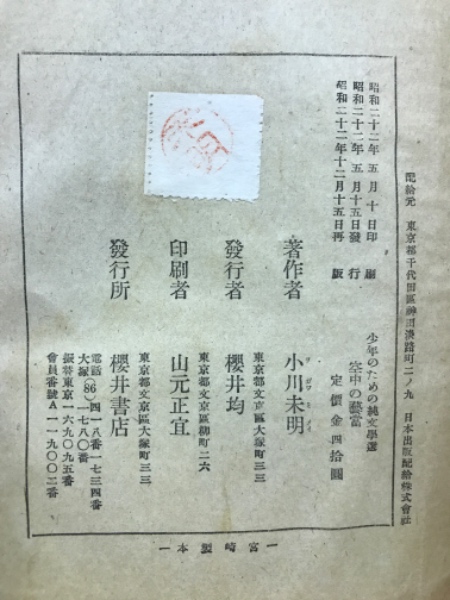 配給元 東京都千代田區神田淡路町二ノ九 日本出版配給株式會社
昭和二十二年五月十日印刷
昭和二十二年五月十五日發行
昭和二十二年十二月十五日再版
少年のための純文學選
空中の藝當
定價金四拾圓
著作者 小川未明
東京都文京區大塚町三三
發行者 櫻井均
東京都文京區柳町二六
印刷者 山元正宜
東京都文京區大塚町三三
發行所 櫻井書店
電話大塚(86)四一八番一七三四番
一七八〇番
振替東京一六九〇九五番
會員番號A一一九〇〇二番
宮崎製本